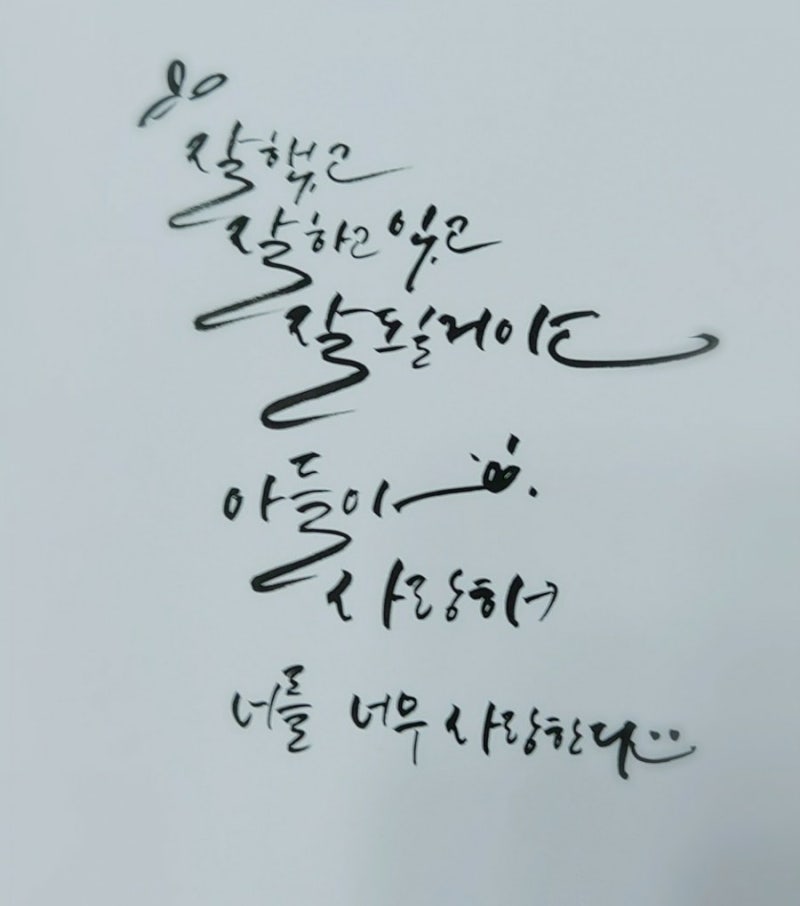 잘했고
잘하고 있고
잘 될거야
아들아
사랑해
너를 너무 사랑한다..